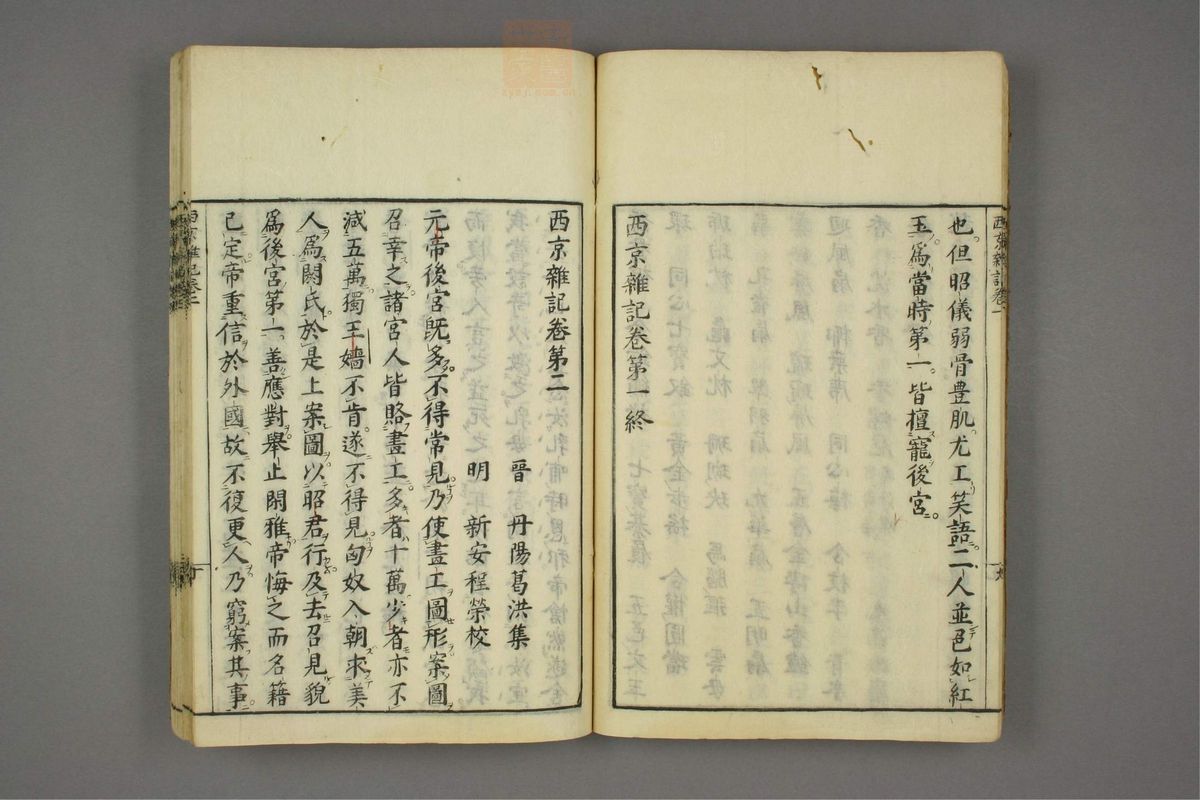 也但昭儀弱骨豊肌尤工笑語二人並色如紅
玉爲當時第一皆擅寵後宮
西京雜記卷第一終
西京雜記卷第二
晉 丹陽葛洪集
明 新安程榮校
元帝後宮既多不得常見乃使畫工圖形案圖
召幸之諸宮人皆賂畫工多者十萬少者亦不
減五萬獨王嬙不肯遂不得見匈奴入朝求美
人爲閼氏於是上案圖以昭君行及去召見貌
爲後宮第一善應對舉止閑雅帝悔之而名籍
已定帝重信於外國故不復更人乃窮案其事